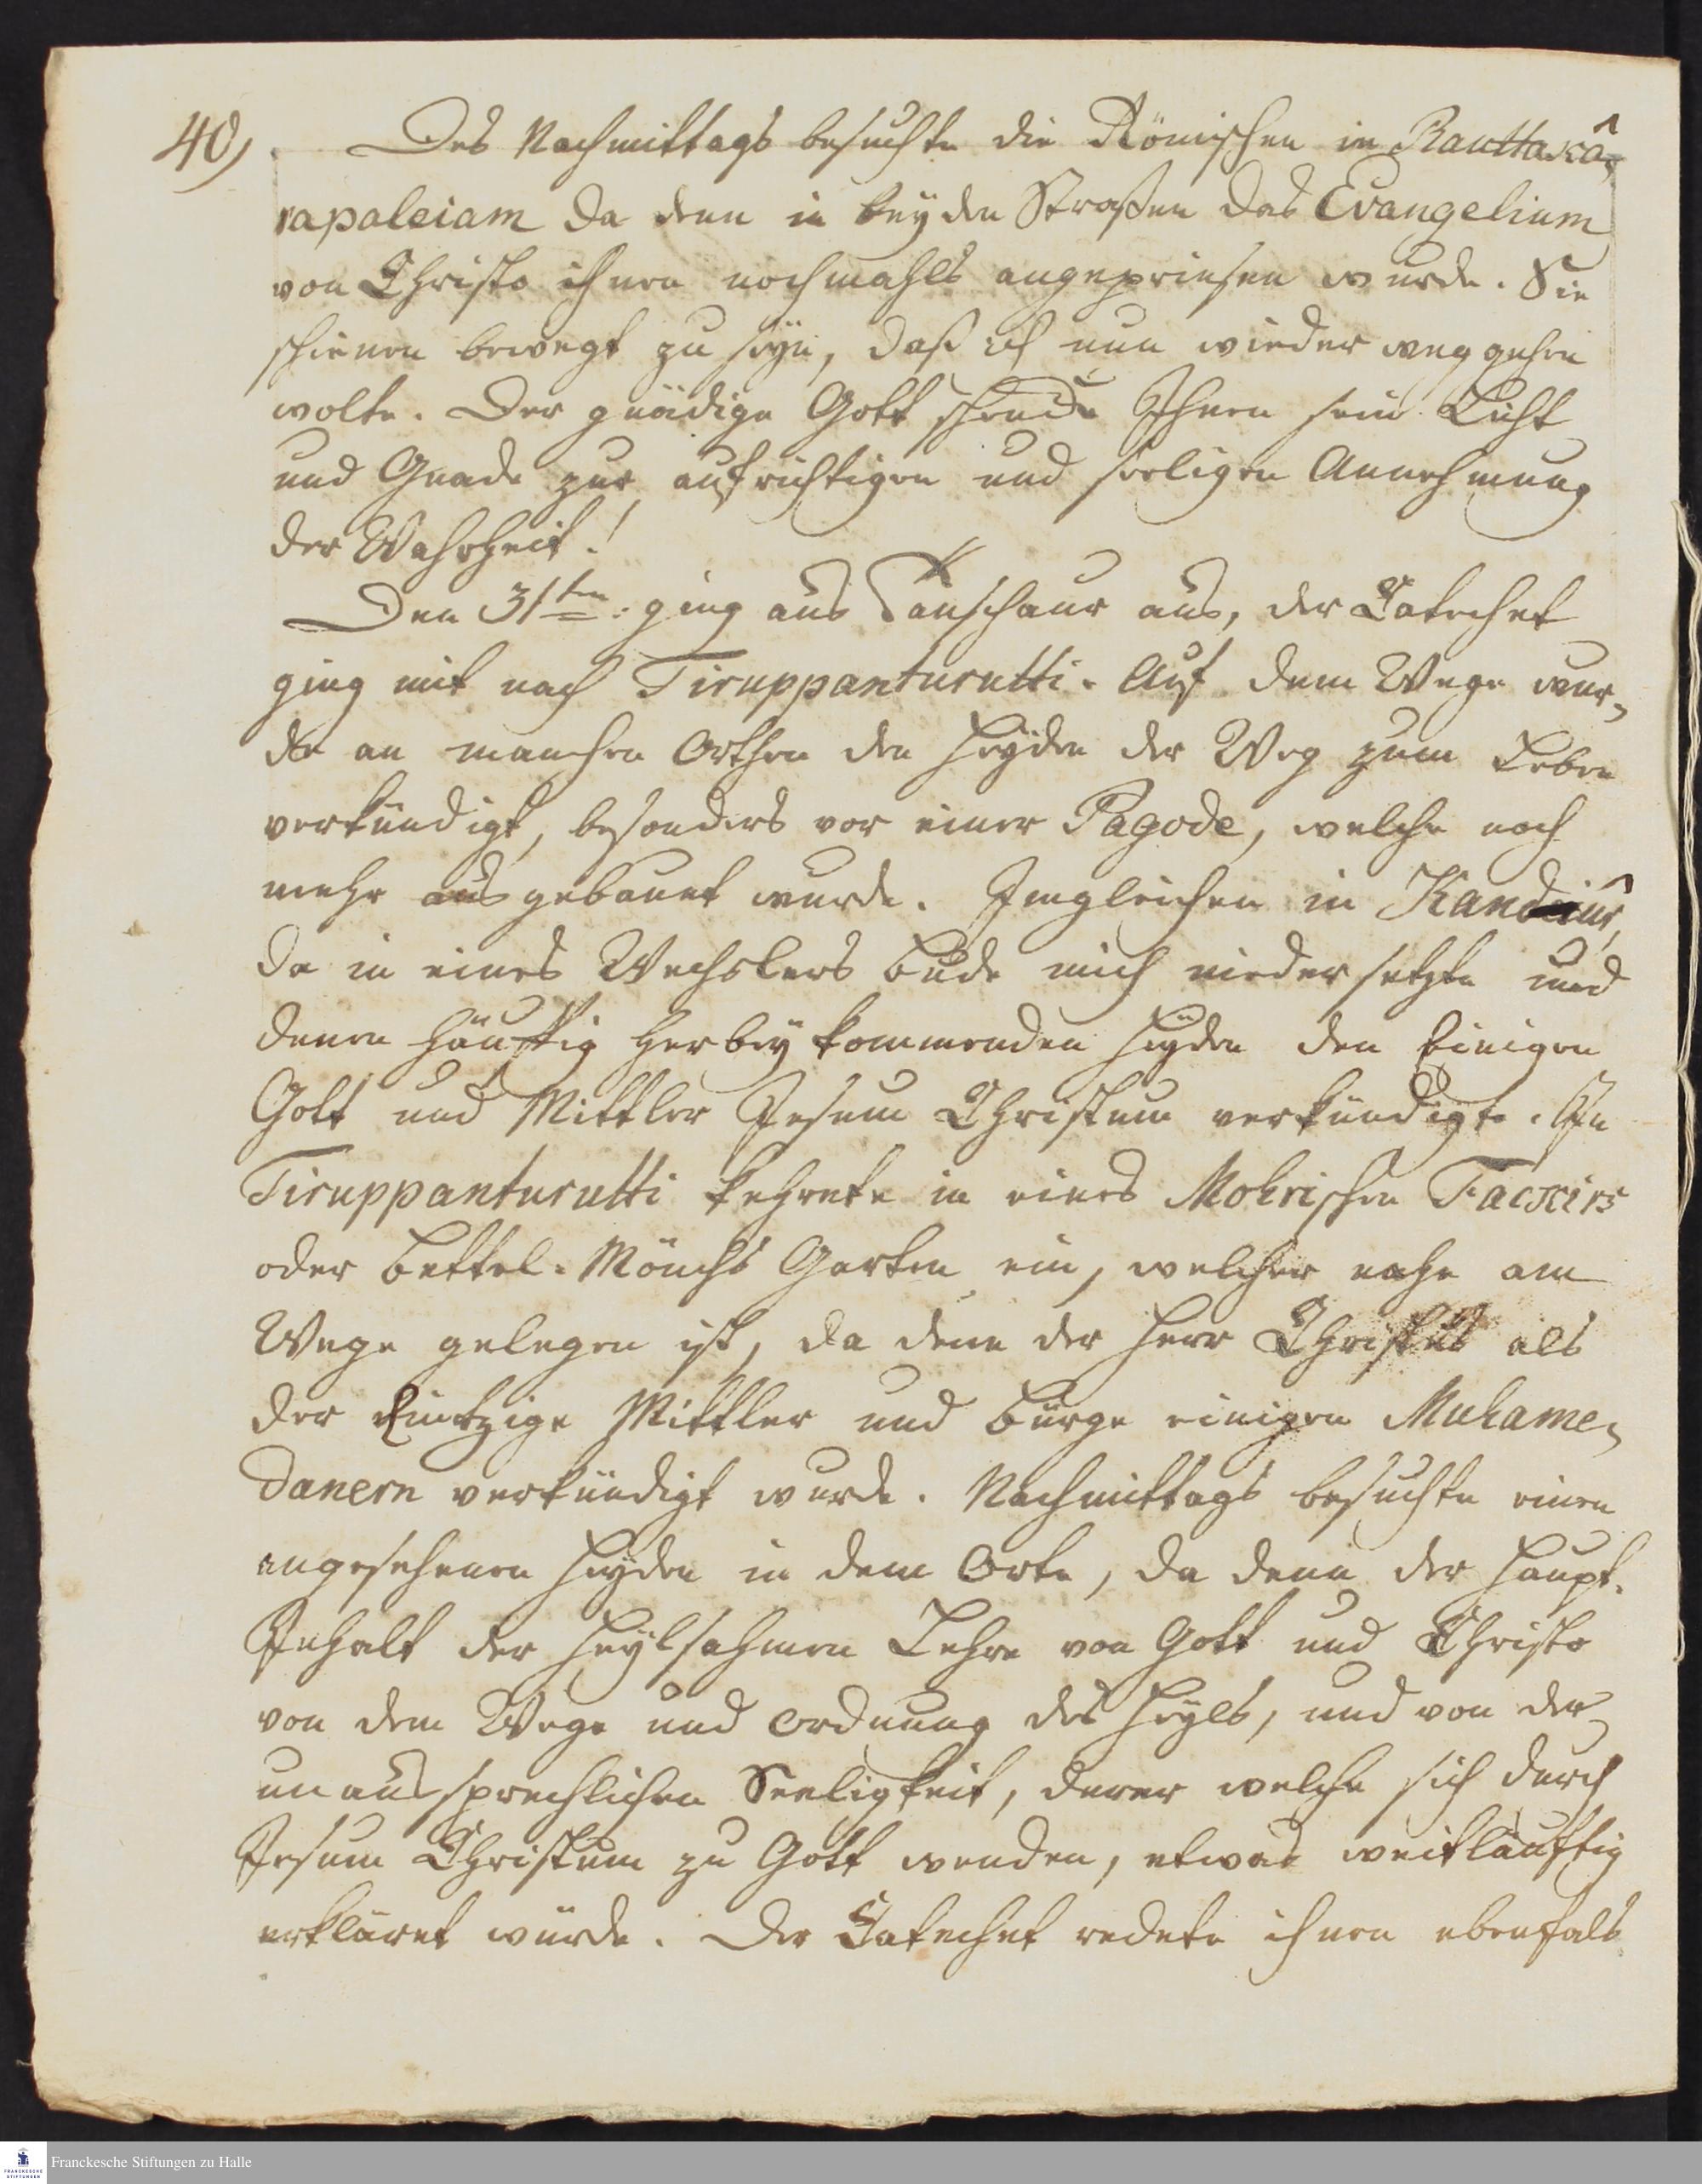 40)
Des Nachmittags besuchte die Römischen in Rauttakâ-
rapaleiam da denn in beyden Straßen das Evangelium
von Christo ihnen nochmahls angepriesen wurde. Sie
schienen bewegt zu seyn, daß ich nun wieder weggehen
wolte. Der gnädige Gott schencke Ihnen sein Licht
und Gnade zur aufrichtigen und seeligen Annehmung
der Wahrheit!
Den 31ten: ging aus Tanschaur aus, der Catechet
ging mit nach Tiruppanturutti. Auf dem Wege wur-
de an manchen Orthen den Heyden der Weg zum Leben
verkündigt, besonders vor einer Pagode, welche noch
mehr ausgebauet wurde. Imgleichen in
da in eines Wechslers Bude mich niedersetzte und
denen häuffig herbey kommenden Heyden den Einigen
Gott und Mittler Jesum Christum verkündigte. In
Tiruppanturutti kehrete in eines Mohrischen Fackirs
oder Bettel-Mönchs Garten ein, welcher nahe am
Wege gelegen ist, da denn der Herr Christus als
der Eintzige Mittler und Bürge einigen Muhame-
danern verkündigt wurde. Nachmittags besuchte einen
angesehenen Heyden in dem Orte, da denn der Haupt-
Inhalt der Heylsahmen Lehre von Gott und Christo
von dem Wege und Ordnung des Heyls, und von der
unaussprechlichen Seeligkeit, derer welche sich durch
Jesum Christum zu Gott wenden, etwas weitläuftig
erkläret würde. Der Catechet redete ihnen ebenfals
FRANCKESCHE STIFTUNGEN
Franckesche Stiftungen zu Halle